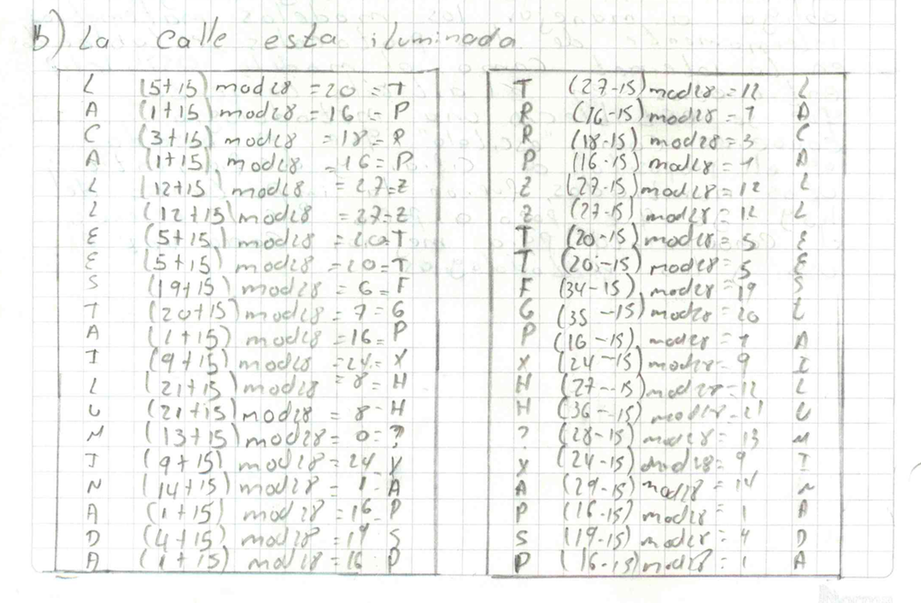 b) La calle esta iluminada
L (5+15) mod28 = 20 = T
A (1+15) mod28 = 16 = P
C (3+15) mod28 = 18 = R
A (1+15) mod28 = 16 = P
L (12+15) mod28 = 27 = Z
L (12+15) mod28 = 27 = Z
E (5+15) mod28 = 20 = T
E (5+15) mod28 = 20 = T
S (19+15) mod28 = 6 = F
T (20+15) mod28 = 7 = G
A (1+15) mod28 = 16 = P
I (9+15) mod28 = 24 = X
L (21+15) mod28 = 8 = H
U (21+15) mod28 = 8 - H
M (13+15) mod28 = 0 = ?
I (9+15) mod28 = 24 Y
N (14+15) mod28 = 1 - A
A (1+15) mod28 = 16 P
D (4+15) mod28 = 19 S
A (1+15) mod28 = 16 P
T (27-15) mod28 = 12 L
R (16-15) mod28 = 1 A
R (18-15) mod28 = 3 C
P (16-15) mod28 = 1 A
Z (27-15) mod28 = 12 L
Z (27-15) mod28 = 12 L
T (20-15) mod28 = 5 E
T (20-15) mod28 = 5 E
F (34-15) mod28 = 19 S
G (35-15) mod28 = 20 L
P (16-15) mod28 = 1 A
X (24-15) mod28 = 9 I
H (27-15) mod28 = 12 L
H (36-15) mod28 = 21 U
? (28-15) mod28 = 13 M
Y (24-15) mod28 = 9 I
A (29-15) mod28 = 14 N
P (16-15) mod28 = 1 A
S (19-15) mod28 = 4 D
P (16-15) mod28 = 1 A